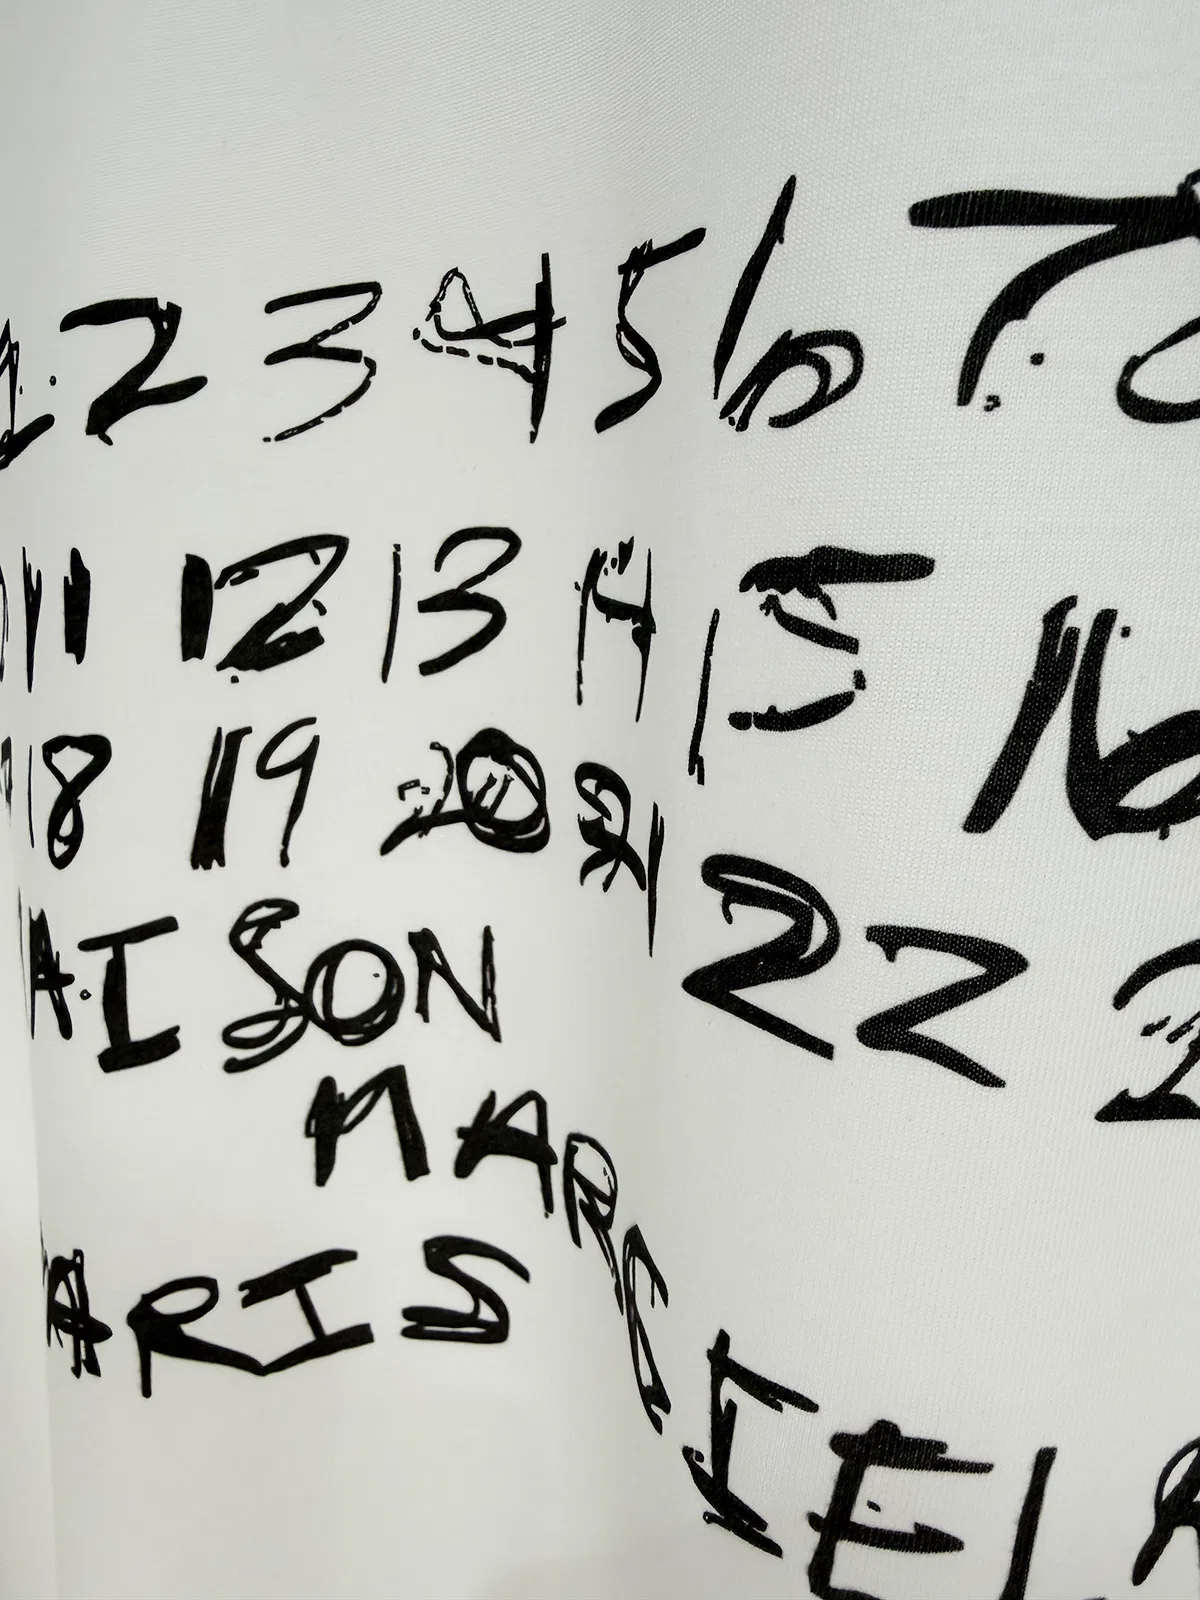 1 2 3 4 5 6 7 8
11 12 13 14 15 16
18 19 20 21 22 2
AISON
MARGIELA
ARIS